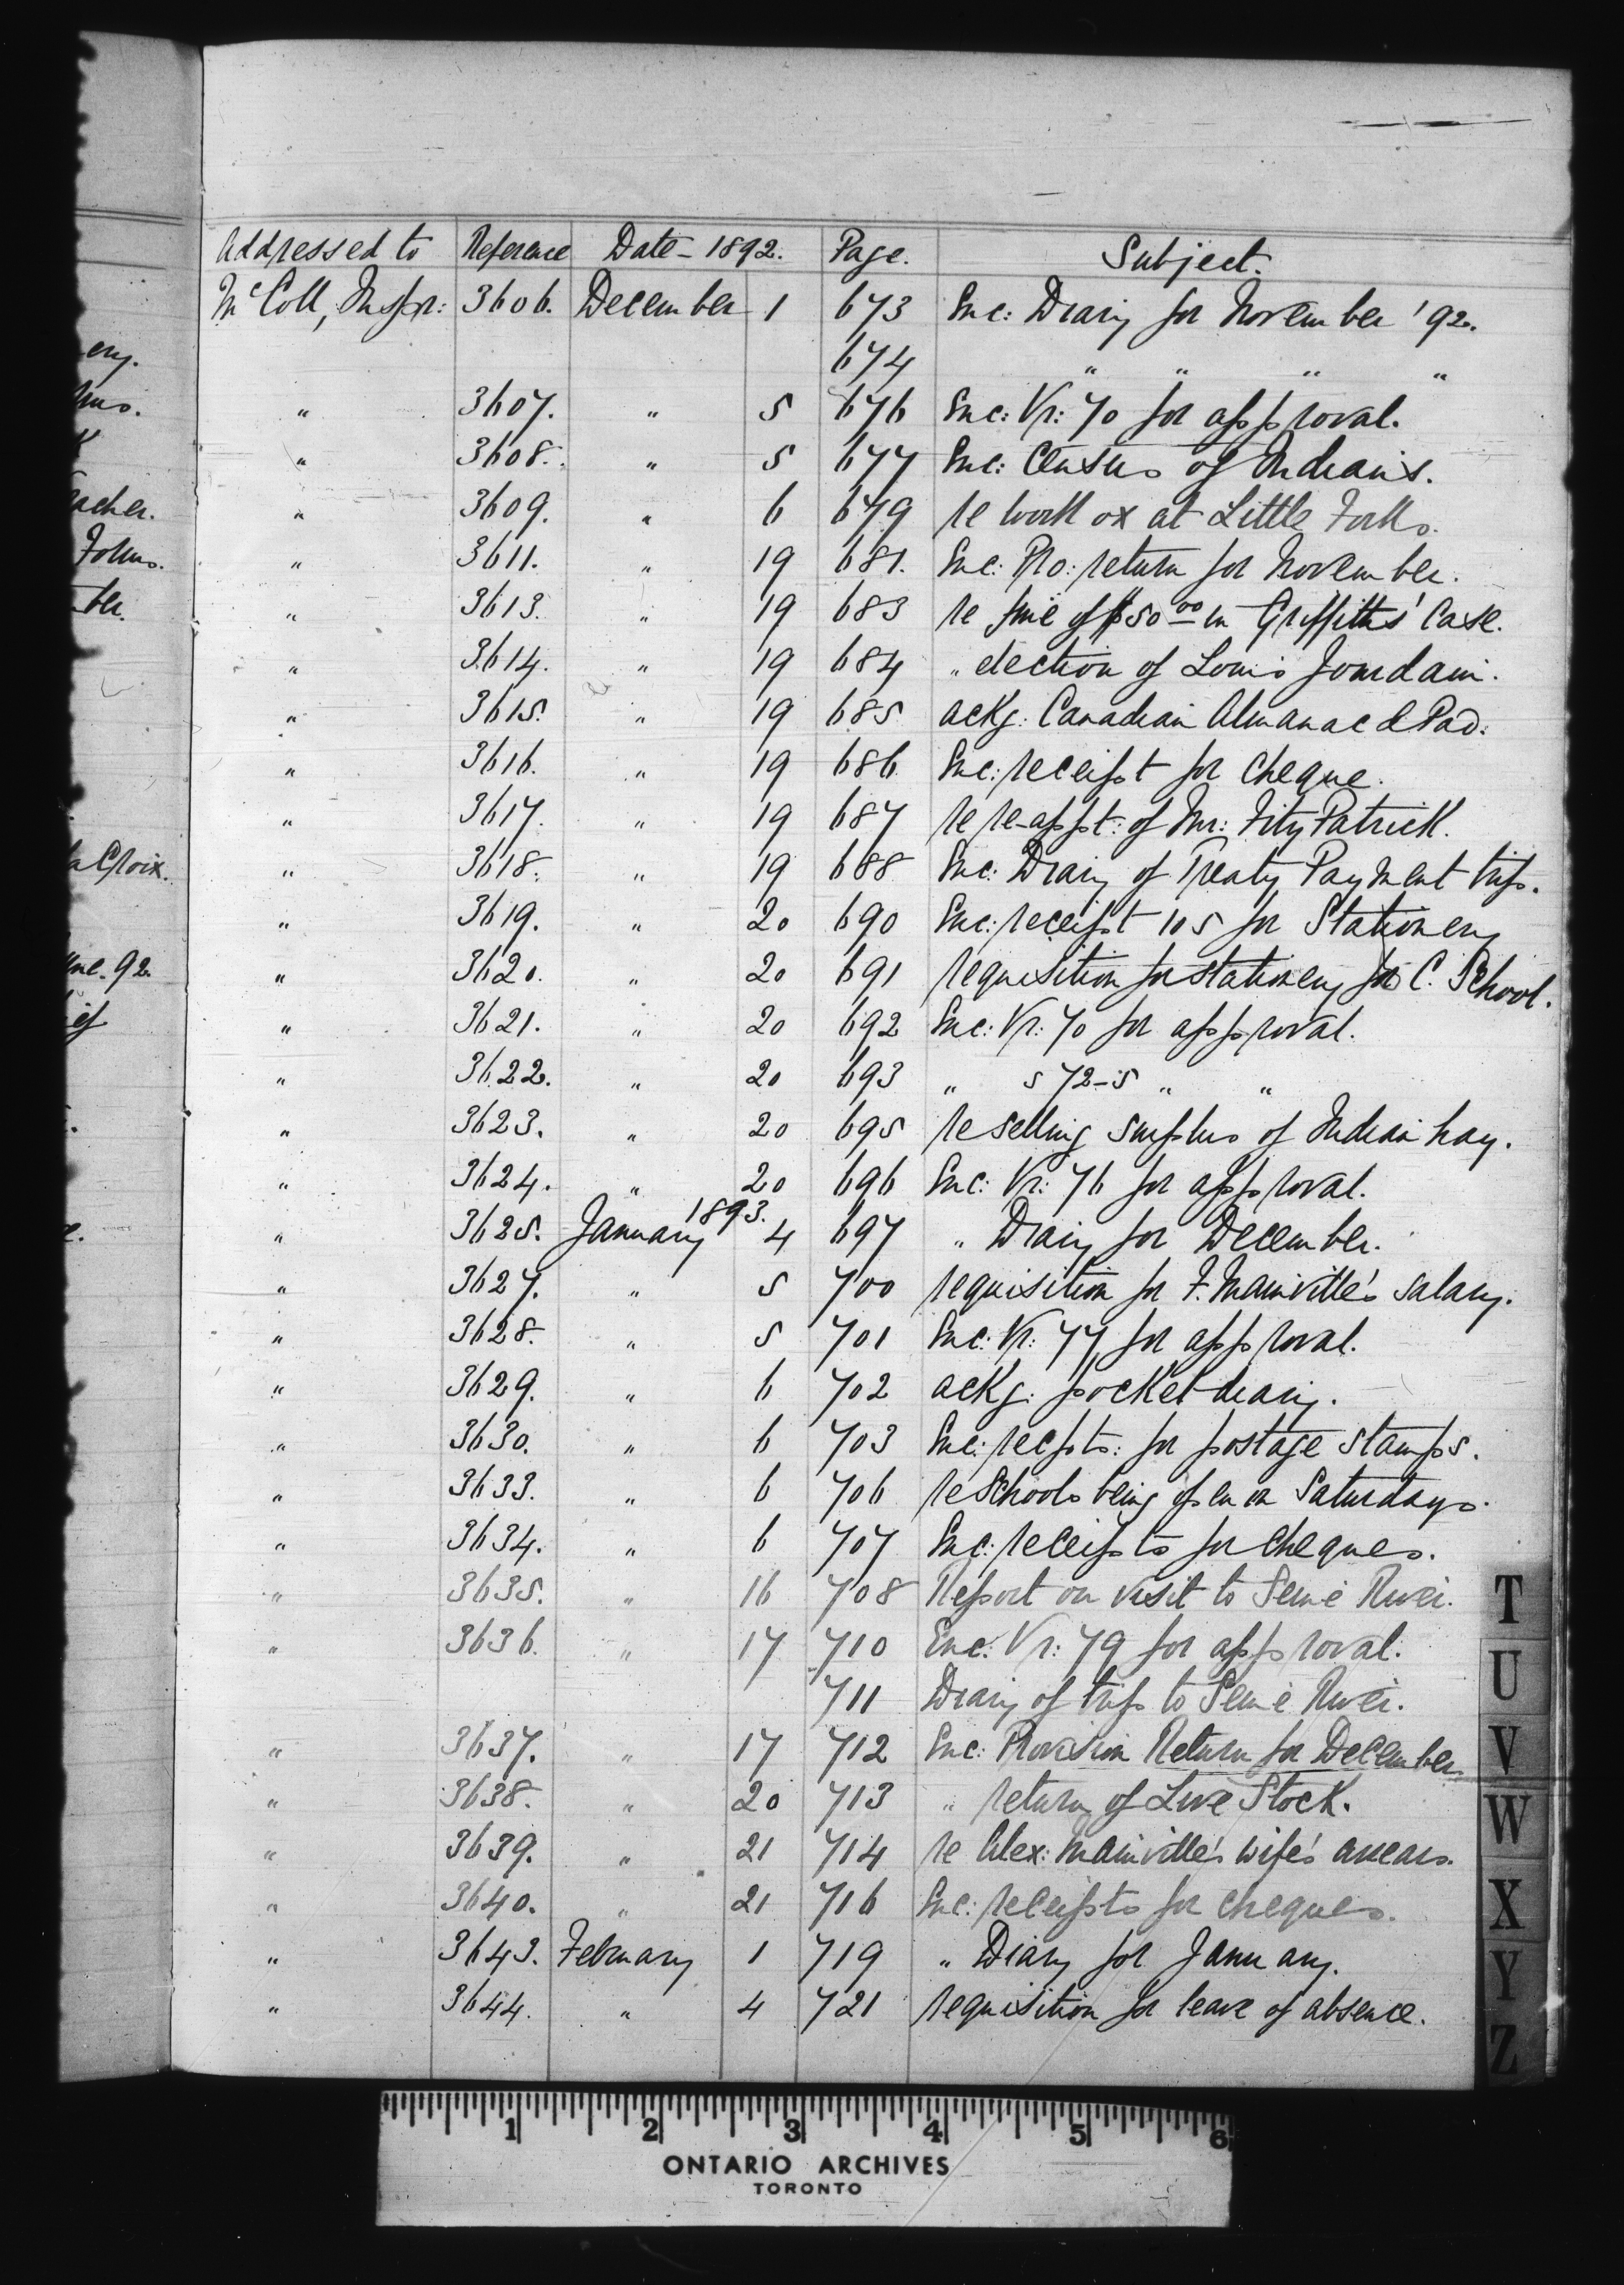 Addressed to Reference Date - 1892. Page. Subject.
McColl, Inspr: 3606. December 1 673 Enc: Diary for November '92.
674 " " " "
" 3607. " 5 676 Enc: Vr: 70 for approval.
" 3608. " 5 677 Enc: Census of Indians.
" 3609. " 6 679 re work ox at Little Forks.
" 3611. " 19 681. Enc: Pro: return for November.
" 3613. " 19 683 re fine of $50 00 in Griffiths' Case.
" 3614. " 19 684 " election of Louis Jourdain.
" 3615. " 19 685 ackg: Canadian Almanac & Pad.
" 3616. " 19 686 Enc: receipt for cheque.
" 3617. " 19 687 re re-appt: of Mr: FitzPatrick.
" 3618. " 19 688 Enc: Diary of Treaty Payment trip.
" 3619. " 20 690 Enc: receipt 105 for Stationery
" 3620. " 20 691 requisition for stationery for C. School.
" 3621. " 20 692 Enc: Vr: 70 for approval.
" 3622. " 20 693 " s 72-5 " "
" 3623. " 20 695 re selling surplus of Indian hay.
" 3624. " 20 696 Enc: Vr: 76 for approval.
1893.
" 3625. January 4 697 " Diary for December.
" 3627. " 5 700 requisition for F. Mainville's salary.
" 3628. " 5 701 Enc: Vr: 77 for approval.
" 3629. " 6 702 ackg: pocket diary.
" 3630. " 6 703 Enc: recpts: for postage stamps.
" 3633. " 6 706 re Schools being open on Saturdays.
" 3634. " 6 707 Enc: receipts for cheques.
" 3635. " 16 708 Report on visit to Seine River.
" 3636. " 17 710 Enc: Vr: 79 for approval.
711 Diary of trip to Seine River.
" 3637. " 17 712 Enc: Provision Return for December
" 3638. " 20 713 " return of Live Stock.
" 3639. " 21 714 re Alex: Mainville's wife's arrears.
" 3640. " 21 716 Enc: receipts for cheques.
" 3643. February 1 719 " Diary for January.
" 3644. " 4 721 requisition for leave of absence.
T
U
V
W
X
Y
Z
1 2 3 4 5 6
ONTARIO ARCHIVES
TORONTO